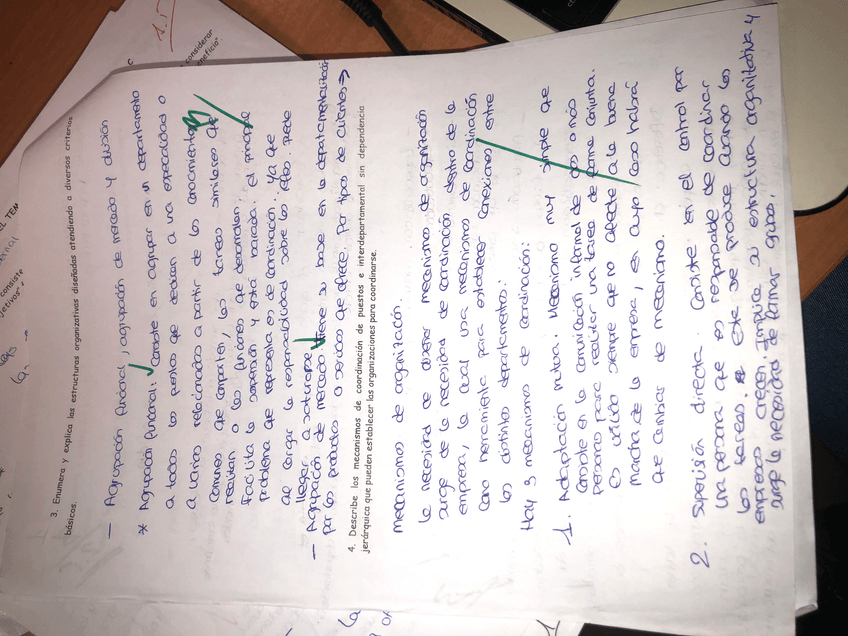 considerar
beneficio".
EL TEM
consiste
jetivos"
3. Enumera y explica las estructuras organizativas diseñadas atendiendo a diversos criterios
básicos.
— Agrupación funcional, agrupación de mercado y división
* Agrupación funcional: Consiste en agrupar en un departamento
a todos los puestos que se dedican a una especialidad o
a varios relacionados a partir de los conocimientos
comunes que comparten, las tareas similares que
realizan o las funciones que desarrollan.
Facilita la supervisión y está barada. El principal
problema que representa es de coordinación, ya que
al cargar la responsabilidad sobre los jefes, puede
llegar a saturarse.
— Agrupación de mercado: tiene su base en la departamentalización
por los productos o servicios que ofrece. Por tipos de clientes →
4. Describe los mecanismos de coordinación de puestos e interdepartamental sin dependencia
jerárquica que pueden establecer las organizaciones para coordinarse.
Mecanismos de organización.
La necesidad de diseñar mecanismos de organización
surge de la necesidad de coordinación dentro de la
empresa, la cual usa mecanismos de coordinación
como herramienta para establecer conexiones entre
los distintos departamentos.
Hay 3 mecanismos de coordinación:
1. Adaptación mutua. Mecanismo muy simple que
consiste en la comunicación informal de dos o más
personas para realizar una tarea de forma conjunta.
Es válido siempre que no afecte a la buena
marcha de la empresa, en cuyo caso habrá
que cambiar de mecanismo.
2. Supervisión directa. Consiste en el control por
una persona que es responsable de coordinar
las tareas. Este se produce cuando las
empresas crecen. Implica su estructura organizativa y
surge la necesidad de formar grupos.